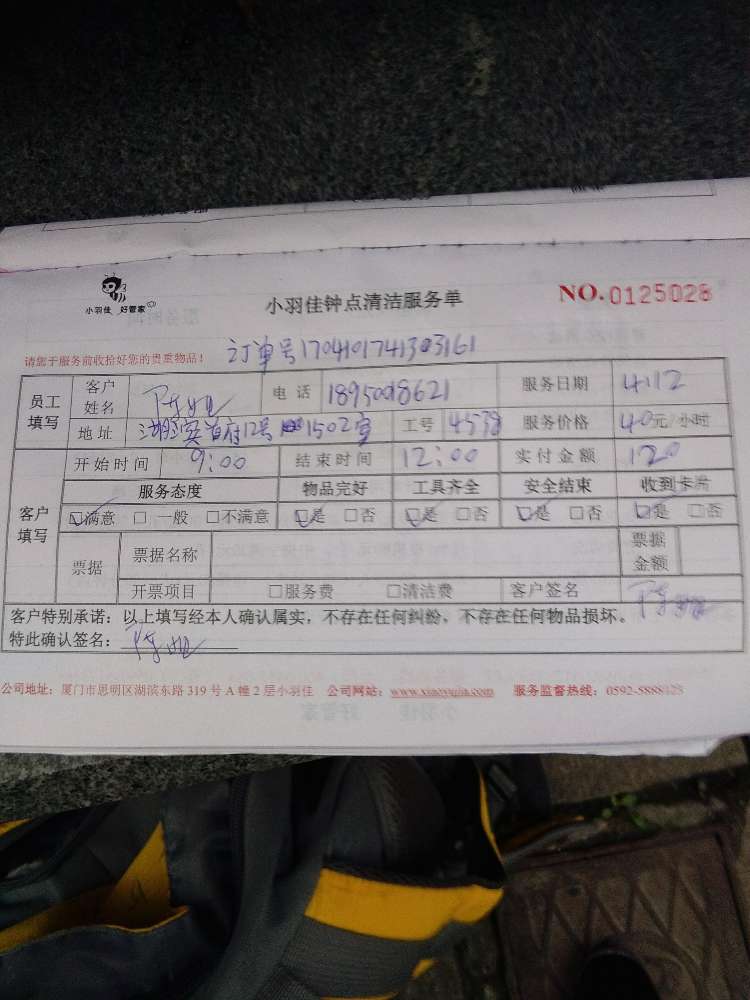 小羽佳 好管家
小羽佳钟点清洁服务单
NO.0125028
请您于服务前收拾好您的贵重物品！ 订单号1704101741303161
员工填写 客户姓名 电话 服务日期 4.12
地址 12号 1502室 工号 4538 服务价格 40元/小时
客户填写 开始时间 9:00 结束时间 12:00 实付金额 120
服务态度 物品完好 工具齐全 安全结束 收到卡片
☑满意 □一般 □不满意 ☑是 □否 ☑是 □否 ☑是 □否 ☑是 □否
票据 票据名称 票据金额
开票项目 □服务费 □清洁费 客户签名
客户特别承诺：以上填写经本人确认属实，不存在任何纠纷，不存在任何物品损坏。
特此确认签名：
公司地址：厦门市思明区湖滨东路 319 号 A 幢 2 层小羽佳 公司网站：www.xiaoyujia.com 服务监督热线：0592-5888123